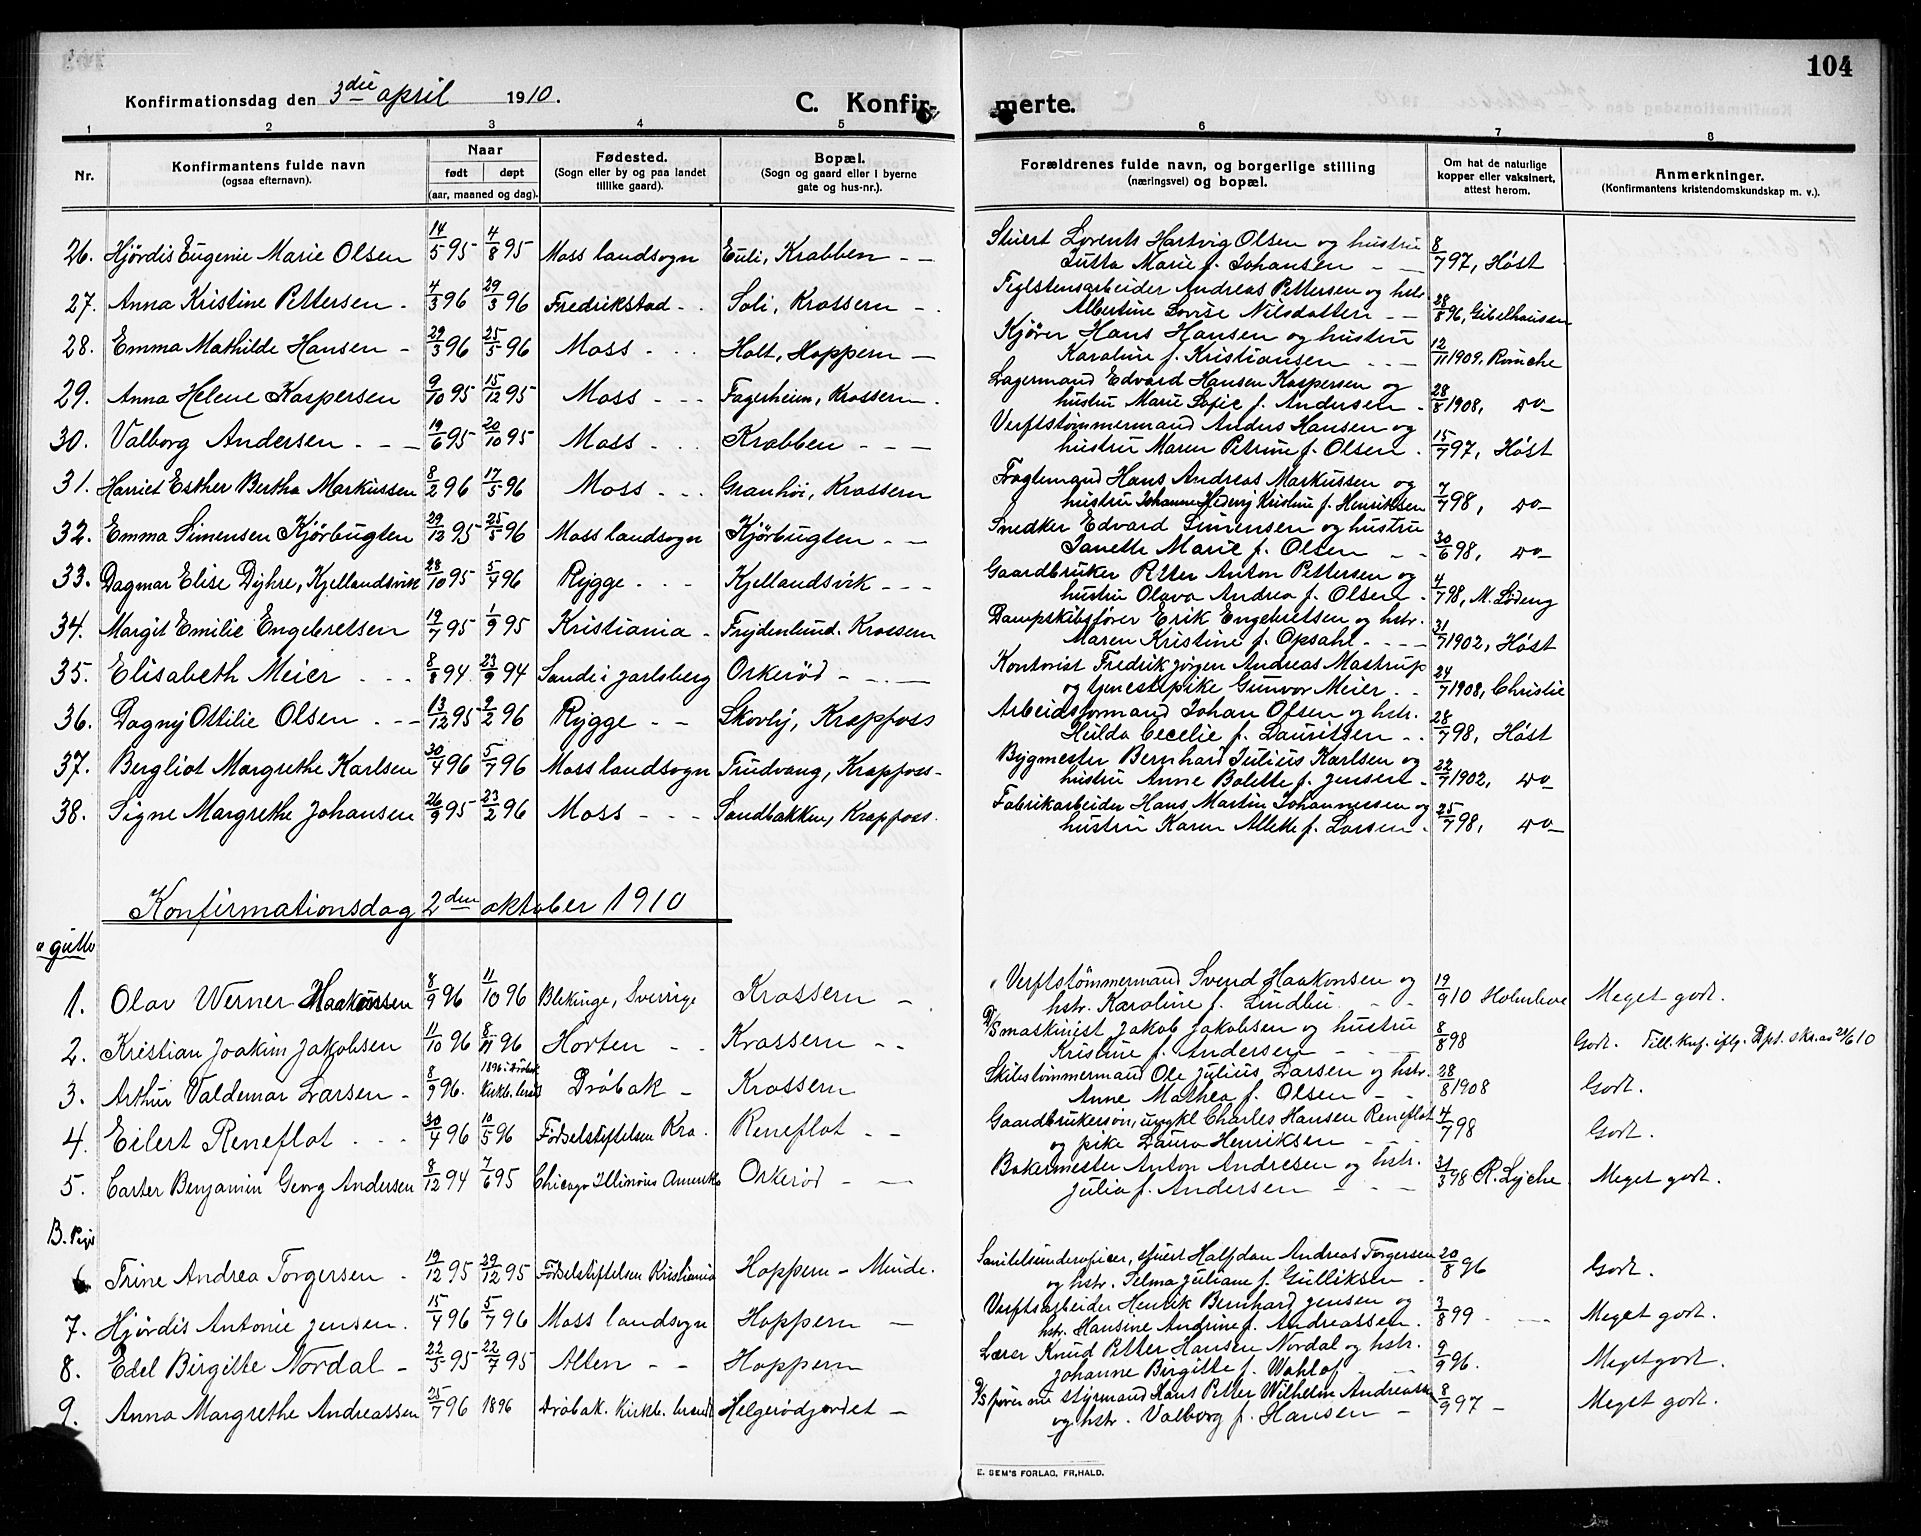 104
Konfirmationsdag den 3die april 1910.
C. Konfirmerte.
1 2 3 4 5 6 7 8
Nr.
Konfirmantens fulde navn
(ogsaa efternavn).
Naar
født døpt
(aar, maaned og dag).
Fødested.
(Sogn eller by og paa landet
tillike gaard).
Bopæl.
(Sogn og gaard eller i byerne
gate og hus-nr.).
Forældrenes fulde navn, og borgerlige stilling
(næringsvei) og bopæl.
Om hat de naturlige
kopper eller vaksinert,
attest herom.
Anmerkninger.
(Konfirmantens kristendomskundskap m. v.).
26. Hjørdis Eugenie Marie Olsen 14/5 95 4/8 95 Moss landsogn Euli, Krabben - - Stuert Lorents Hartvig Olsen og hustru
Jutta Marie f. Johansen - - 8/7 97, Høst
27. Anna Kristine Pettersen - 4/3 96 29/3 96 Fredrikstad - . Soli, Krossern - . Teglstensarbeider Andreas Pettersen og hstr.
Albertine Lovise Nilsdatter - - 28/8 96, Gibelhausen
28. Emma Mathilde Hansen - 29/3 96 25/5 96 Moss - . . Holt, Hoppern - Kjører Hans Hansen og hustru
Karoline f. Kristiansen - - - 12/11 1909, Rømcke
29. Anna Helene Kaspersen 9/10 95 15/12 95 Moss - - - Fagerheim, Krossern - . Lagermand Edvard Hansen Kaspersen og
hustru Marie Sofie f. Andersen - 28/8 1908, do-
30. Valborg Andersen - - - 19/6 95 20/10 95 Moss - . . Krabben - - - Verftstømmermand Anders Hansen og
hustru Maren Petrine f. Olsen . 15/7 97, Høst
31. Harriet Esther Bertha Markussen 8/2 96 17/5 96 Moss - - . Granhøi, Krossern Hans Andreas Markussen og
hustru Johanne Hedevig Kristine f. Henriksen 7/7 98, do-
32. Emma Simensen Kjørbugten 29/12 95 25/5 96 Moss landsogn Kjørbugten - - Snedker Edvard Simensen og hustru
Janette Marie f. Olsen - - 30/6 98, do-
33. Dagmar Elise Dyhre, Kjellandsvik 28/10 95 5/4 96 Rygge - - . Kjellandsvik - - - Gaardbruker Petter Anton Pettersen og
hustru Olava Andrea f. Olsen . 4/7 98, M. Lødeng
34. Margit Emilie Engebretsen 19/7 95 1/9 95 Kristiania - Frydenlund. Krossern Dampskibsfører Erik Engebretsen og hstr.
Maren Kristine f. Opsahl - - - 31/7 1902, Høst
35. Elisabeth Meier . . - 8/8 94 23/9 94 Sande i Jarlsberg Orkerød - - - Kontorist Fredrik Jørgen Andreas Mastrup
og tjenestepike Gunvor Meier . . 24/7 1908, Christie
36. Dagny Ottilie Olsen . - - 13/12 95 9/2 96 Rygge - - Skovly, Krapfoss Arbeidsformand Johan Olsen og hstr.
Hulda Cecelie f. Lauritsen . . 28/7 98, Høst
37. Bergliot Margrethe Karlsen 30/4 96 5/7 96 Moss landsogn Trudvang, Krapfoss- Bygmester Bernhard Julius Karlsen og
hustru Anne Bolette f. Jensen - 22/7 1902, do-
38. Signe Margrethe Johansen 26/9 95 23/2 96 Moss - - - Sandbakken, Krapfoss. Fabrikarbeider Hans Martin Johannessen og
hustru Karen Alette f. Larsen . 25/7 98, do-
Konfirmationsdag 2den oktober 1910
a gutter
1. Olav Werner Haakonsen 8/9 96 11/10 96 Blekinge, Sverrige Krossern - Verftstømmermand Svend Haakonsen og
hstr. Karoline f. Lindbu - - 19/9 10 Holmboe Meget godt.
2. Kristian Joakim Jakobsen 11/10 96 8/11 96 Horten - - Krossern - - D/S maskinist Jakob Jakobsen og hustru
Kristine f. Andersen - - 8/8 98 Godt. Till. knf. iflg. Dpt. skr. av 24/6 10
3. Arthur Valdemar Larsen - 8/9 96. 1896 i Drøbak Drøbak - Krossern Skibstømmermand Ole Julius Larsen og hstr.
Anne Mathea f. Olsen - - 28/8 1908 Godt.
4. Eilert Reneflot . . - 30/4 96 10/5 96 Fødselstiftelsen Kra. Reneflot - - Gaardbrukersøn, ungkl Charles Hansen Reneflot
og pike Laura Henriksen - - - 4/7 98 Godt.
5. Carter Benjamin Georg Andersen 8/12 94 7/6 95 Chicago Illinois Amerika Orkerød - - Bakermester Anton Andresen og hstr.
Julia f. Andersen - - - 31/3 98 R. Lyche Meget godt.
B. Piger
6 Trine Andrea Torgersen - 19/12 95 29/12 95 Fødselstiftelsen Kristiania Hoppern - Minde. Sanitetsunderoficer, stuert Halfdan Andreas Torgersen
og hstr. Selma Juliane f. Gulliksen - 20/8 96 Godt.
7. Hjørdis Antonie Jensen. 15/4 96 5/7 96 Moss landsogn Hoppern - Verftsarbeider Henrik Bernhard Jensen og
hstr. Hansine Andrine f. Andreassen. 3/8 99 - Meget godt.
8. Edel Birgitte Nordal - 22/5 95 22/7 95 Alten - - Hoppern Lærer Knud Petter Hansen Nordal og hstr.
Johanne Birgitte f. Wahlof - - 9/9 96. Meget godt.
9. Anna Margrethe Andreassen 25/7 96 1896 Drøbak. Kirkb. Helgerødgjerdet - D/S fører Hans Petter Wilhelm Andreassen
og hstr. Valborg f. Hansen - 8/9 97 - Meget godt.
E. SEM'S FORLAG, FR,HALD.